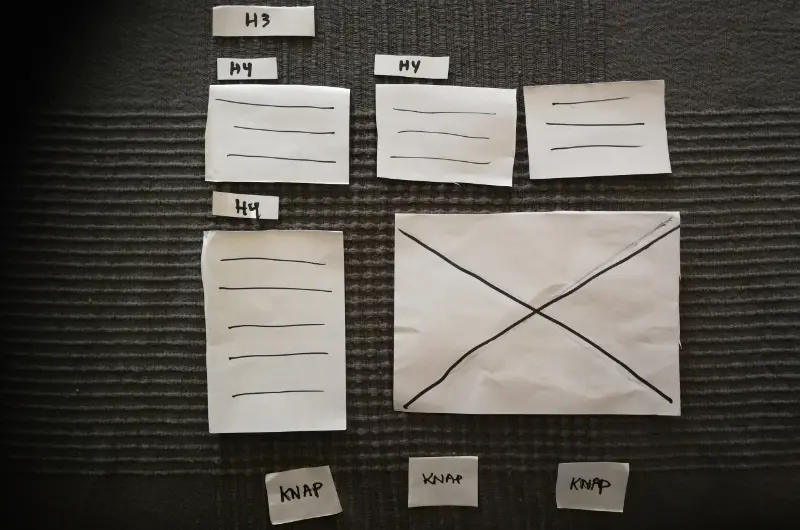 H3
H4
H4
H4
KNAP
KNAP
KNAP